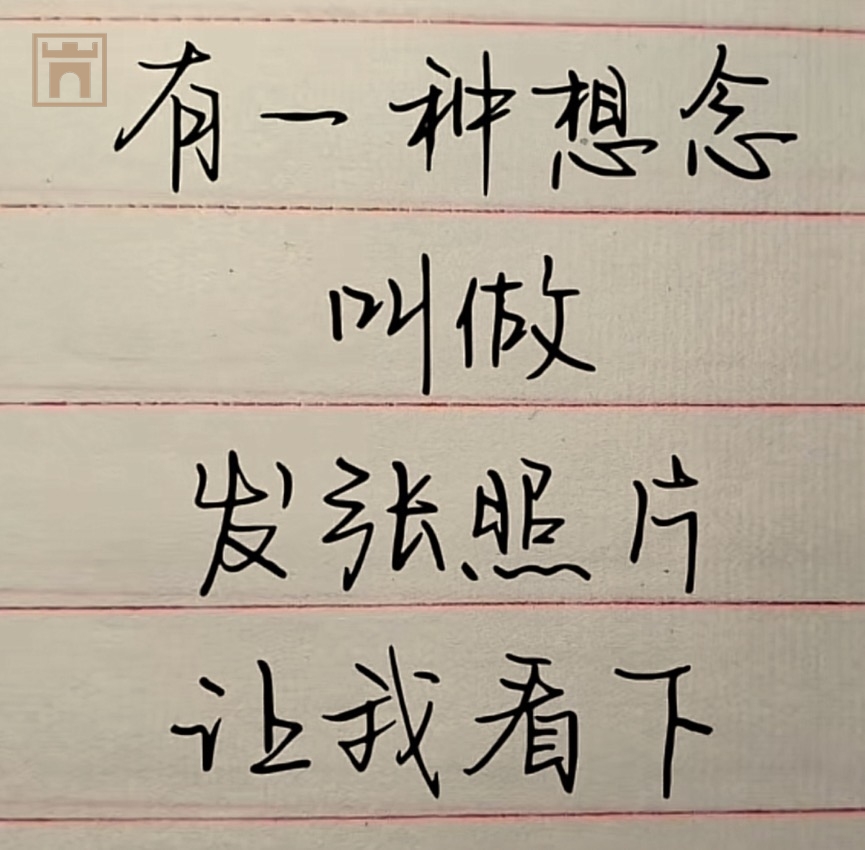 有一种想念
叫做
发张照片
让我看下